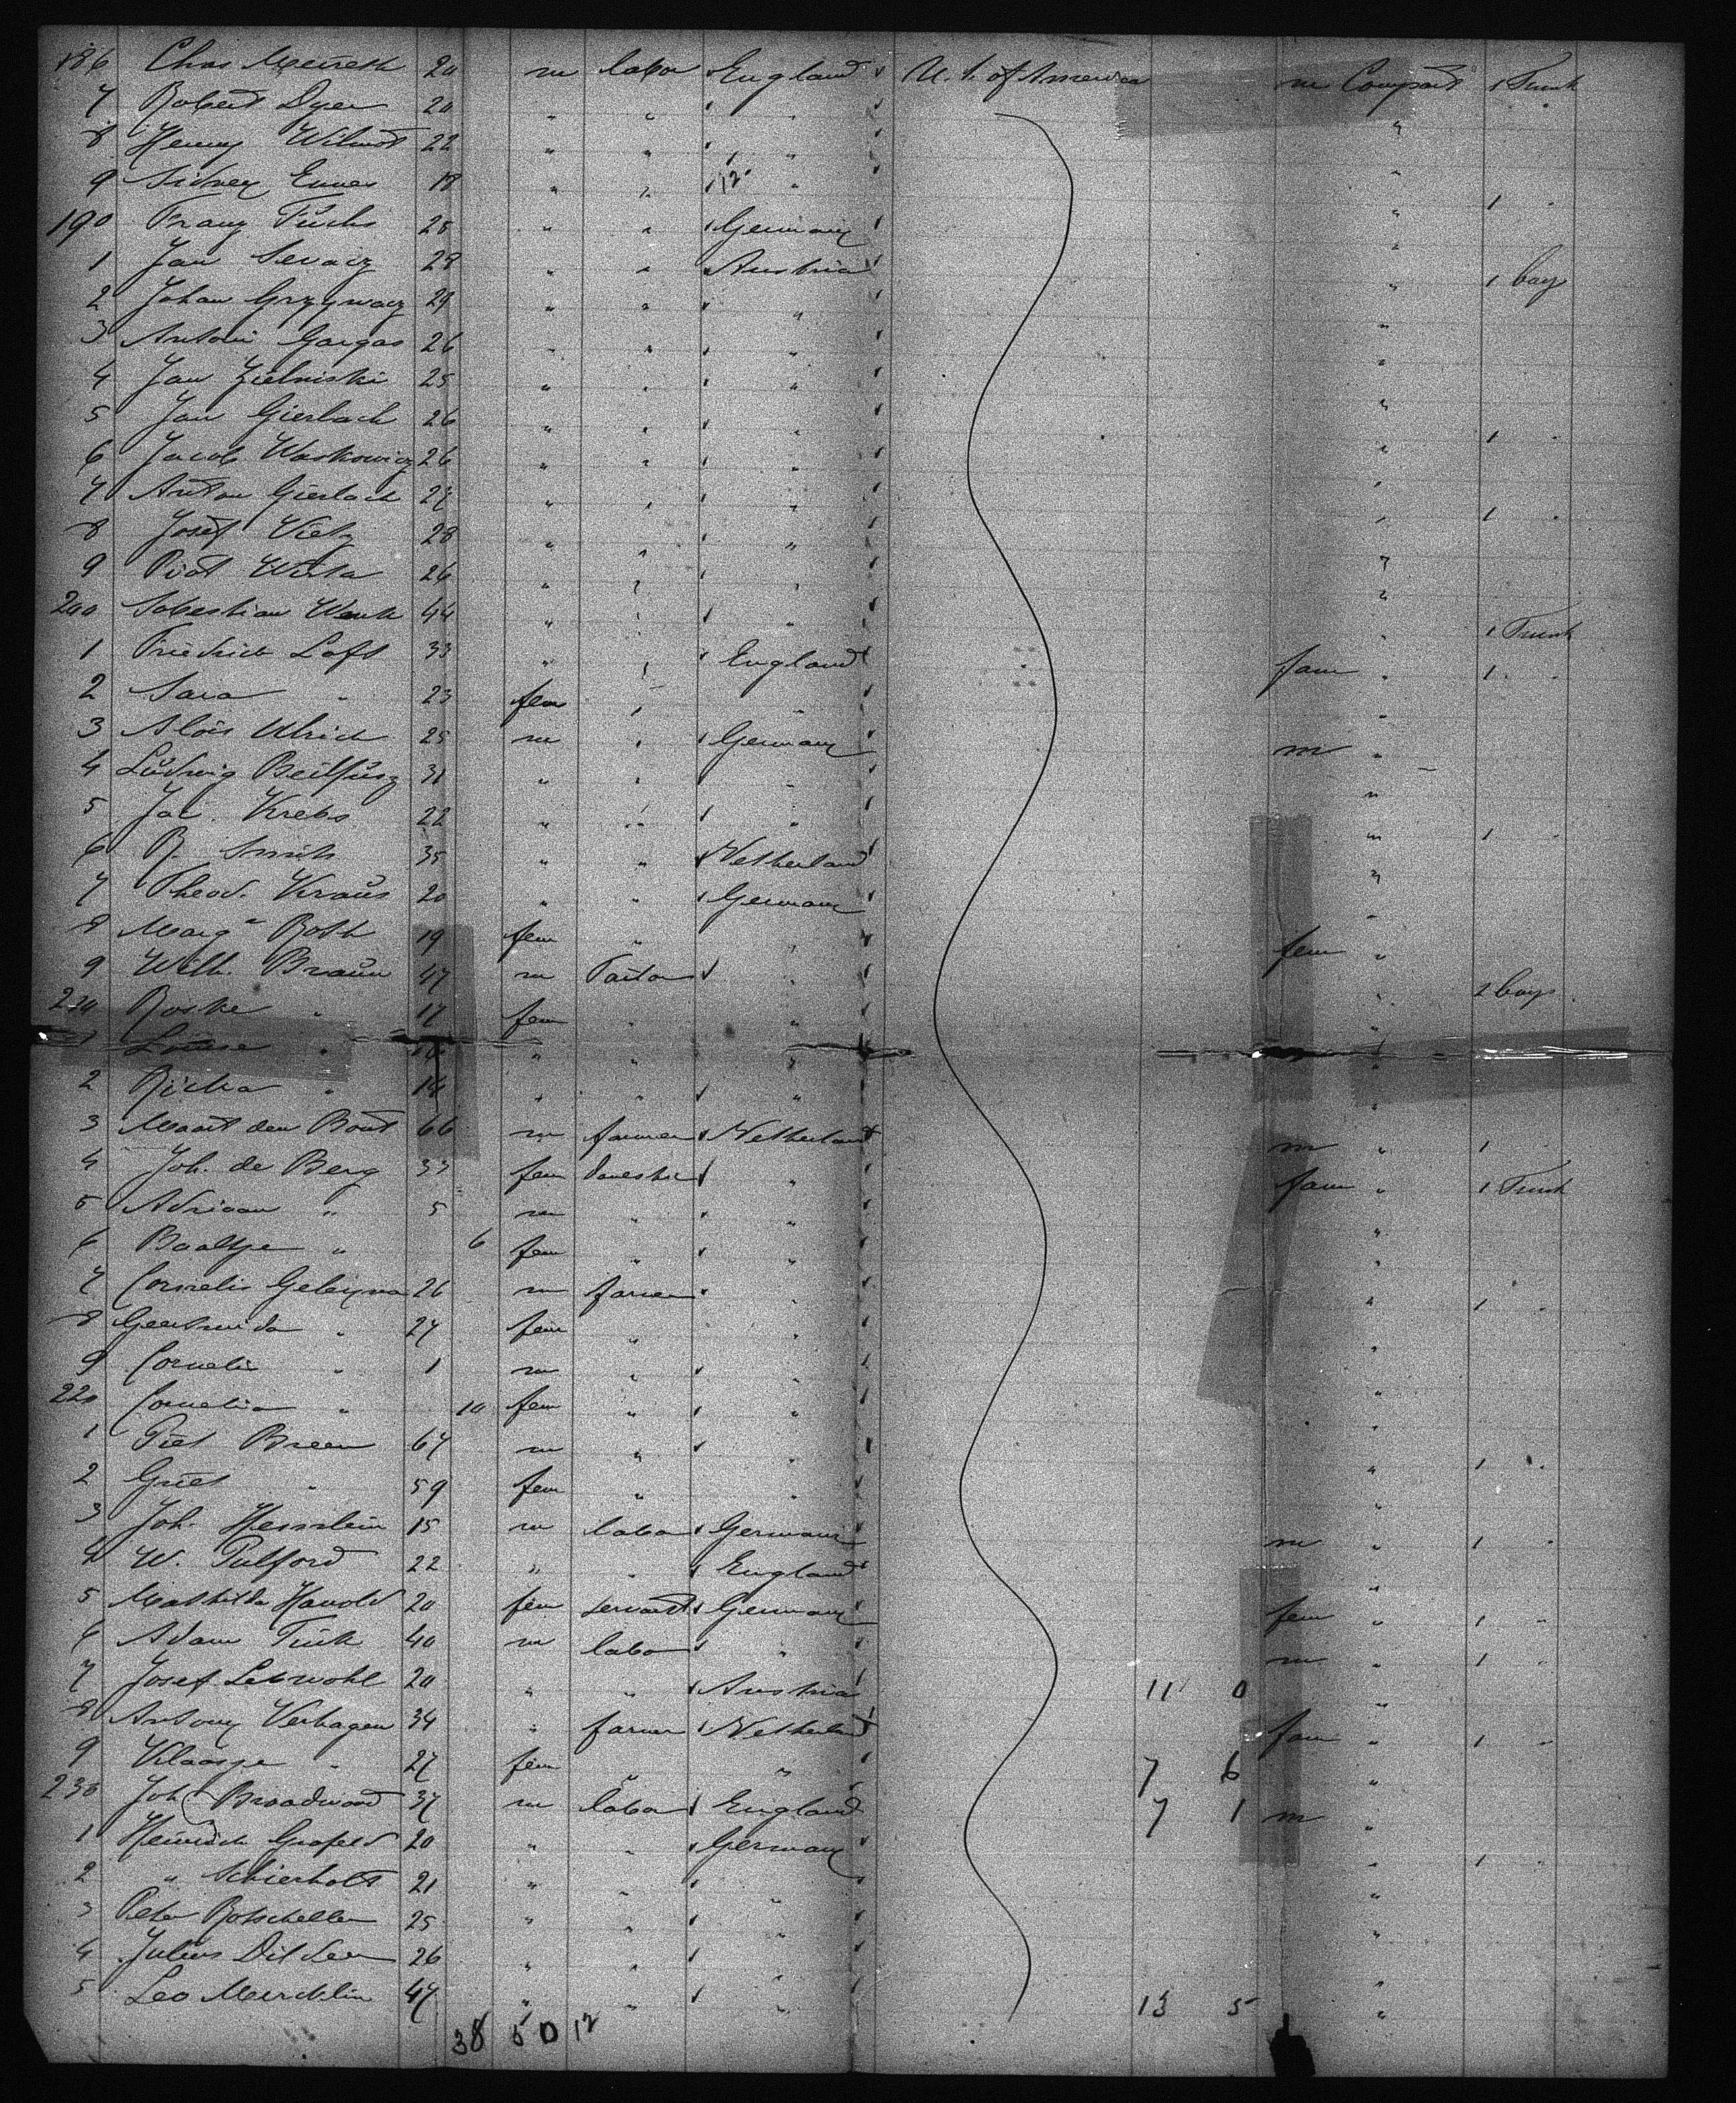 186 Chas 20 m labor England U. S. of America m Compart 1 Trunk
7 Robert Dyer 20 " " " "
8 Henry Wilmot 22 " " " "
9 Sidney 18 " " " " 1 "
190 Franz Fuchs 28 " " Germany "
1 Jan 28 " " Austria " 1 bag
2 Johan Grzywacz 29 " " " "
3 Antoni Gargas 26 " " " "
4 Jan Zielniski 25 " " " "
5 Jan Gierlach 26 " " " " 1 "
6 Jacob Waskowicz 26 " " " "
7 Anton Gierlach 27 " " " " 1 "
8 Josef 28 " " " "
9 Piot 26 " " " "
200 Sobestian Wenk 44 " " " " 1 Trunk
1 Friedrich Loft 33 " " England fam " 1 "
2 Sara " 23 fem " " "
3 Alois Ulrich 25 m " Germany m "
4 Ludwig Beilfusz 31 " " " "
5 Jac. Krebs 22 " " " " 1 "
6 R. Smith 35 " " Netherland "
7 Theod. Kraus 20 " " Germany "
8 Marg Roth 19 fem " " fem "
9 Wilh. Braun 47 m Tailor " " 2 bags
210 Roske " 17 fem " " "
1 Louise " " " " "
2 Richa " 14 " " " "
3 Maart den Bout 66 m farmer Netherland m " 1 "
4 Joh. de Berg 33 fem domestic " fam " 1 Trunk
5 Adriaan " 5 m " " "
6 Baaltje " 6 fem " " "
7 Cornelis 26 m farmer " " 1 "
8 Geertruida " 27 fem " " "
9 Cornelis " 1 m " " "
220 Cornelia " 10 fem " " "
1 Piet Breen 67 m " " " 1 "
2 Griet " 59 fem " " "
3 Joh. Hensslein 15 m labor Germany m " 1 "
4 W. Pulford 22 " " England "
5 Mathilda Harold 20 fem servant Germany fem " 1 "
6 Adam Fink 40 m labor " m " 1 "
7 Josef Lebwohl 20 " " Austria 11 0 "
8 Antony Verhagen 34 " farmer Netherland fam " 1 "
9 Klaasje " 27 fem " " 7 6 "
230 Joh Broadwood 37 m labor England 7 1 m "
1 Heinrich Grafeld 20 " " Germany " 1 "
2 " Schierholt 21 " " " "
3 Peter Rotscheller 25 " " " "
4 Julius 26 " " " "
5 Leo Mercklin 47 " " " 13 5 "
38 50 12